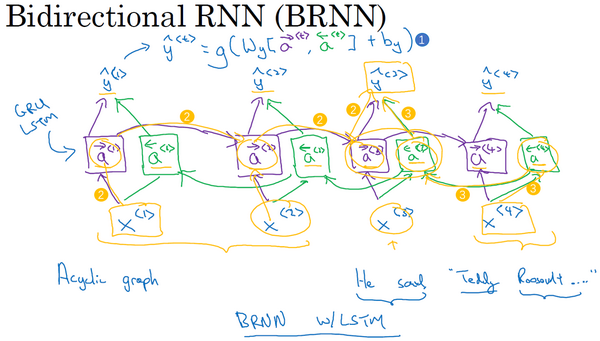 Bidirectional RNN (BRNN)
ŷ<t> = g(Wy[a→<t>, a←<t>] + by) 1
ŷ<1> ŷ<2> ŷ<3> ŷ<4>
GRU
LSTM
2 2 2 3
a→<1> a←<1> a→<2> a←<2> a→<3> a←<3> a→<4> a←<4>
2 3 3
x<1> x<2> x<3> x<4>
Acyclic graph He said, "Teddy Roosevelt ...."
BRNN w/LSTM